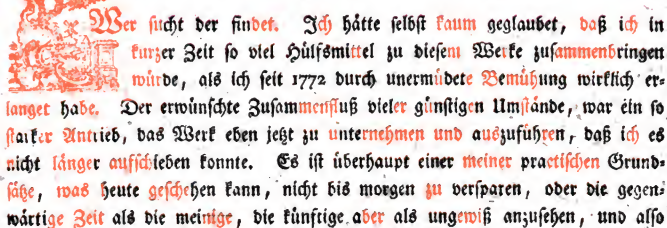 Wer sucht der findet. Ich hätte selbst kaum geglaubet, daß ich in
kurzer Zeit so viel Hülfsmittel zu diesem Werke zusammenbringen
würde, als ich seit 1772 durch unermüdete Bemühung wirklich er-
langet habe. Der erwünschte Zusammenfluß vieler günstigen Umstände, war ein so
starker Antrieb, das Werk eben jetzt zu unternehmen und auszuführen, daß ich es
nicht länger aufschieben konnte. Es ist überhaupt einer meiner practischen Grund-
sätze, was heute geschehen kann, nicht bis morgen zu versparen, oder die gegen-
wärtige Zeit als die meinige, die künftige aber als ungewiß anzusehen, und also